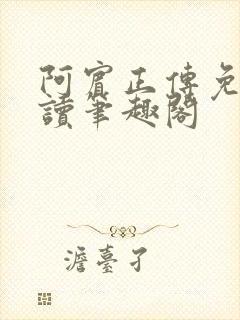 阿賓正傳免
讀筆趣閣
澹臺孑